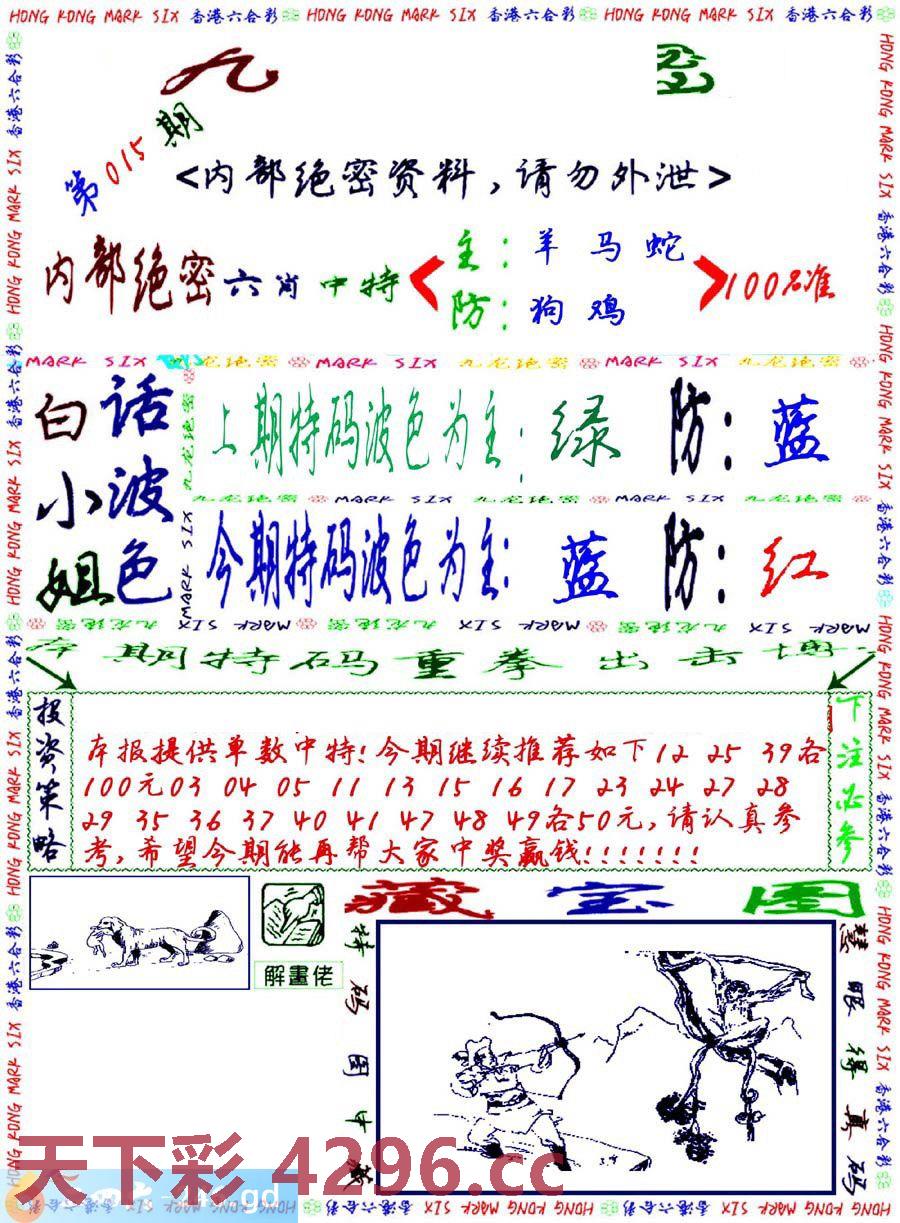 HONG KONG MARK SIX 香港六合彩 HONG KONG MARK SIX 香港六合彩 HONG KONG MARK SIX 香港六合彩
九
第015期
<内部绝密资料,请勿外泄>
内部绝密六肖中特
主:羊马蛇
防:狗鸡
100%准
MARK SIX 九龙绝密 MARK SIX 九龙绝密 MARK SIX 九龙绝密
白话
小波
姐色
上期特码波色为主:绿 防:蓝
九龙绝密 MARK SIX 九龙绝密 MARK SIX 九龙绝密
今期特码波色为主:蓝 防:红
期特码重拳出击
投资策略
本报提供单数中特!今期继续推荐如下12 25 39各
100元03 04 05 11 13 15 16 17 23 24 27 28
29 35 36 37 40 41 47 48 49各50元,请认真参
考,希望今期能再帮大家中奖赢钱!!!!!!!
下注必参
解畫佬
藏宝图
特码图中藏
慧眼得真码
天下彩4296.cc